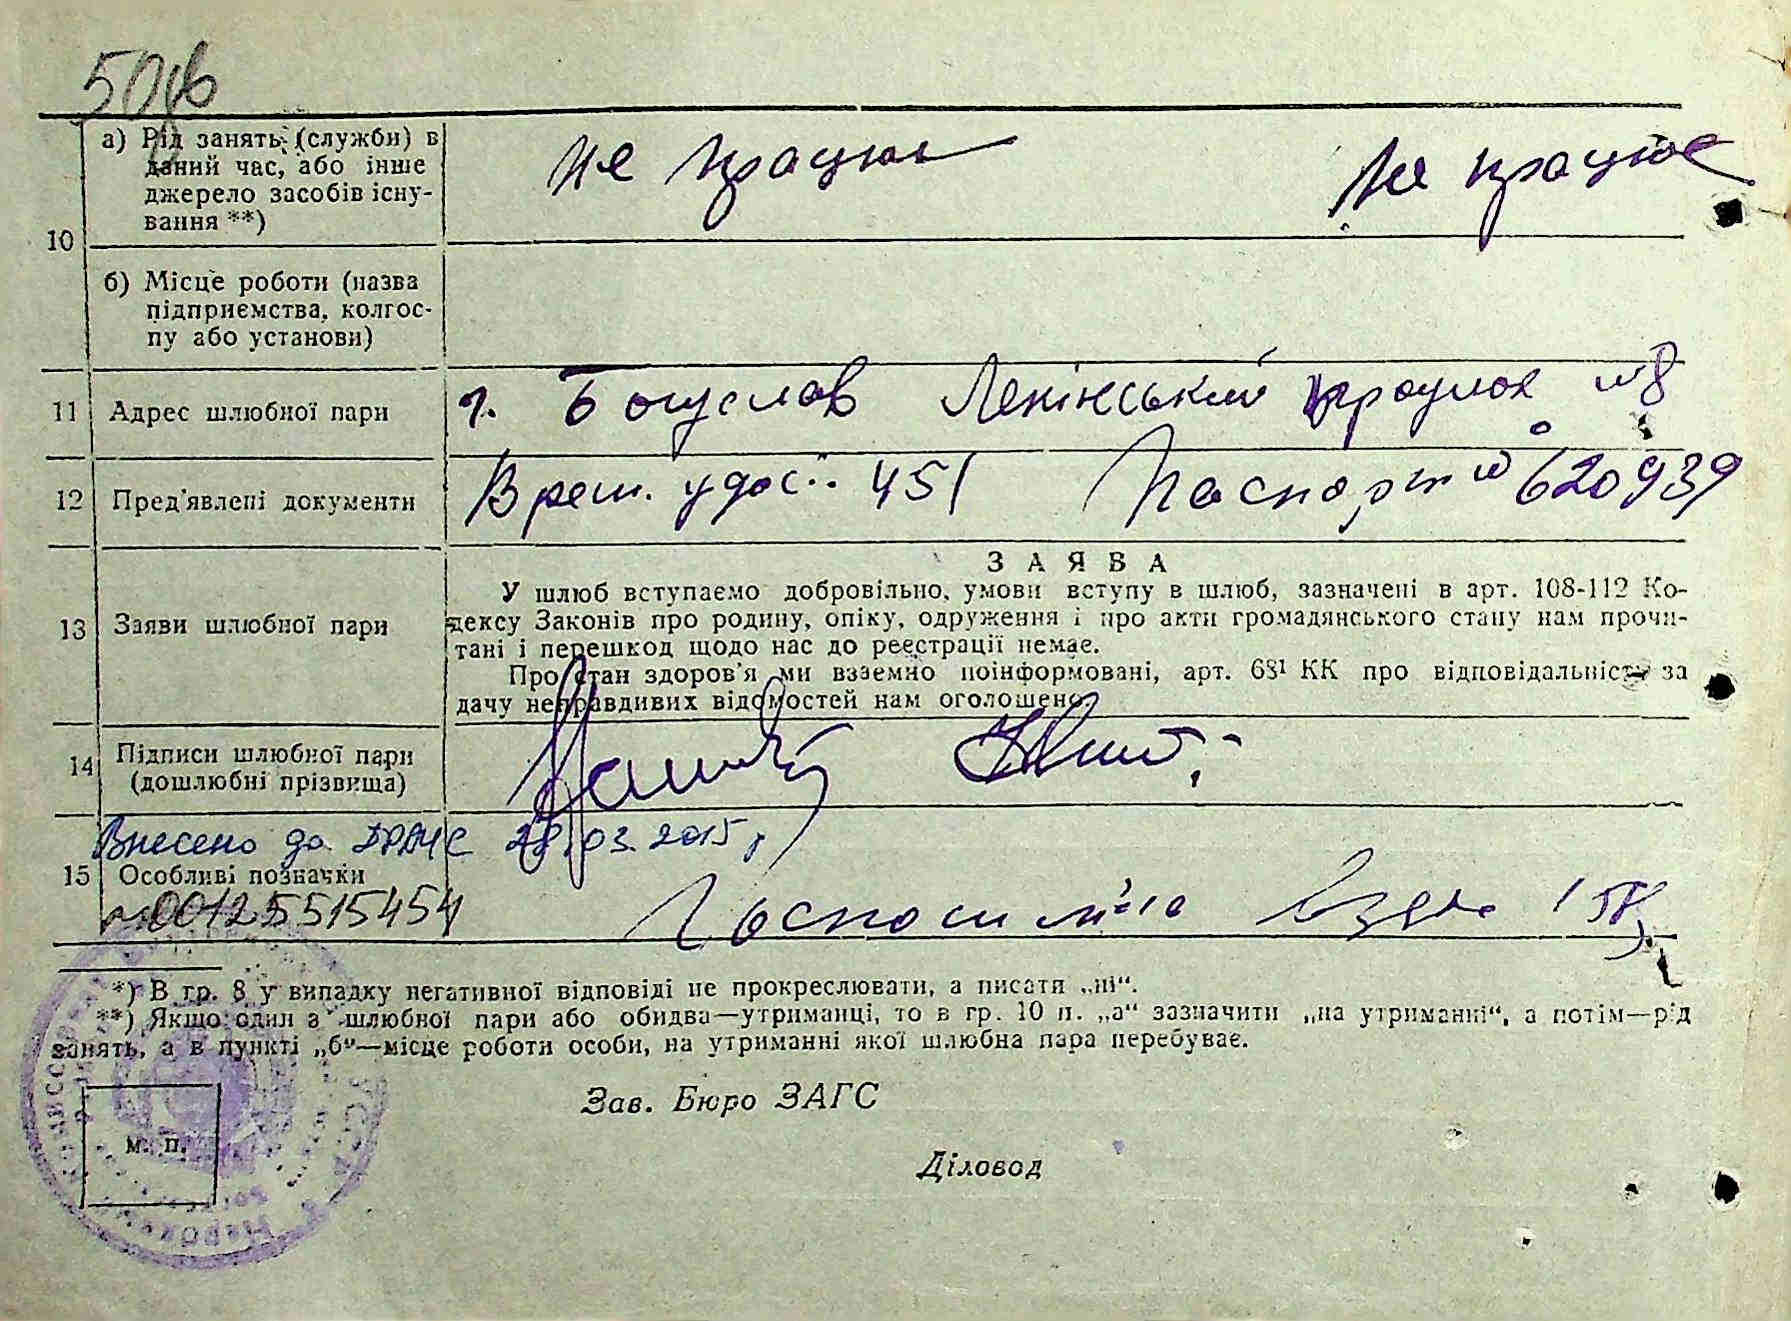 50
10
а) Рід занять (служби) в
даний час, або інше
джерело засобів існу-
вання **)
Не працює
Не працює
б) Місце роботи (назва
підприємства, колгос-
пу або установи)
11 Адрес шлюбної пари
г. Богуслав Ленінський №8
12 Пред'явлені документи
Врем. удос. 451 Паспорт № 620939
13 Заяви шлюбної пари
ЗАЯВА
У шлюб вступаємо добровільно, умови вступу в шлюб, зазначені в арт. 108-112 Ко-
дексу Законів про родину, опіку, одруження і про акти громадянського стану нам прочи-
тані і перешкод щодо нас до реєстрації немає.
Про стан здоров'я ми взаємно поінформовані, арт. 68¹ КК про відповідальність за
дачу неправдивих відомостей нам оголошено.
14 Підписи шлюбної пари
(дошлюбні прізвища)
Внесено до ДРАЦС 28.03.2015 р
15 Особливі позначки
№00125515454
*) В гр. 8 у випадку негативної відповіді не прокреслювати, а писати „ні“.
**) Якщо один з шлюбної пари або обидва—утриманці, то в гр. 10 п. „а“ зазначити „на утриманні“, а потім—рід
занять, а в пункті „б“—місце роботи особи, на утриманні якої шлюбна пара перебуває.
Зав. Бюро ЗАГС
М. П.
Діловод